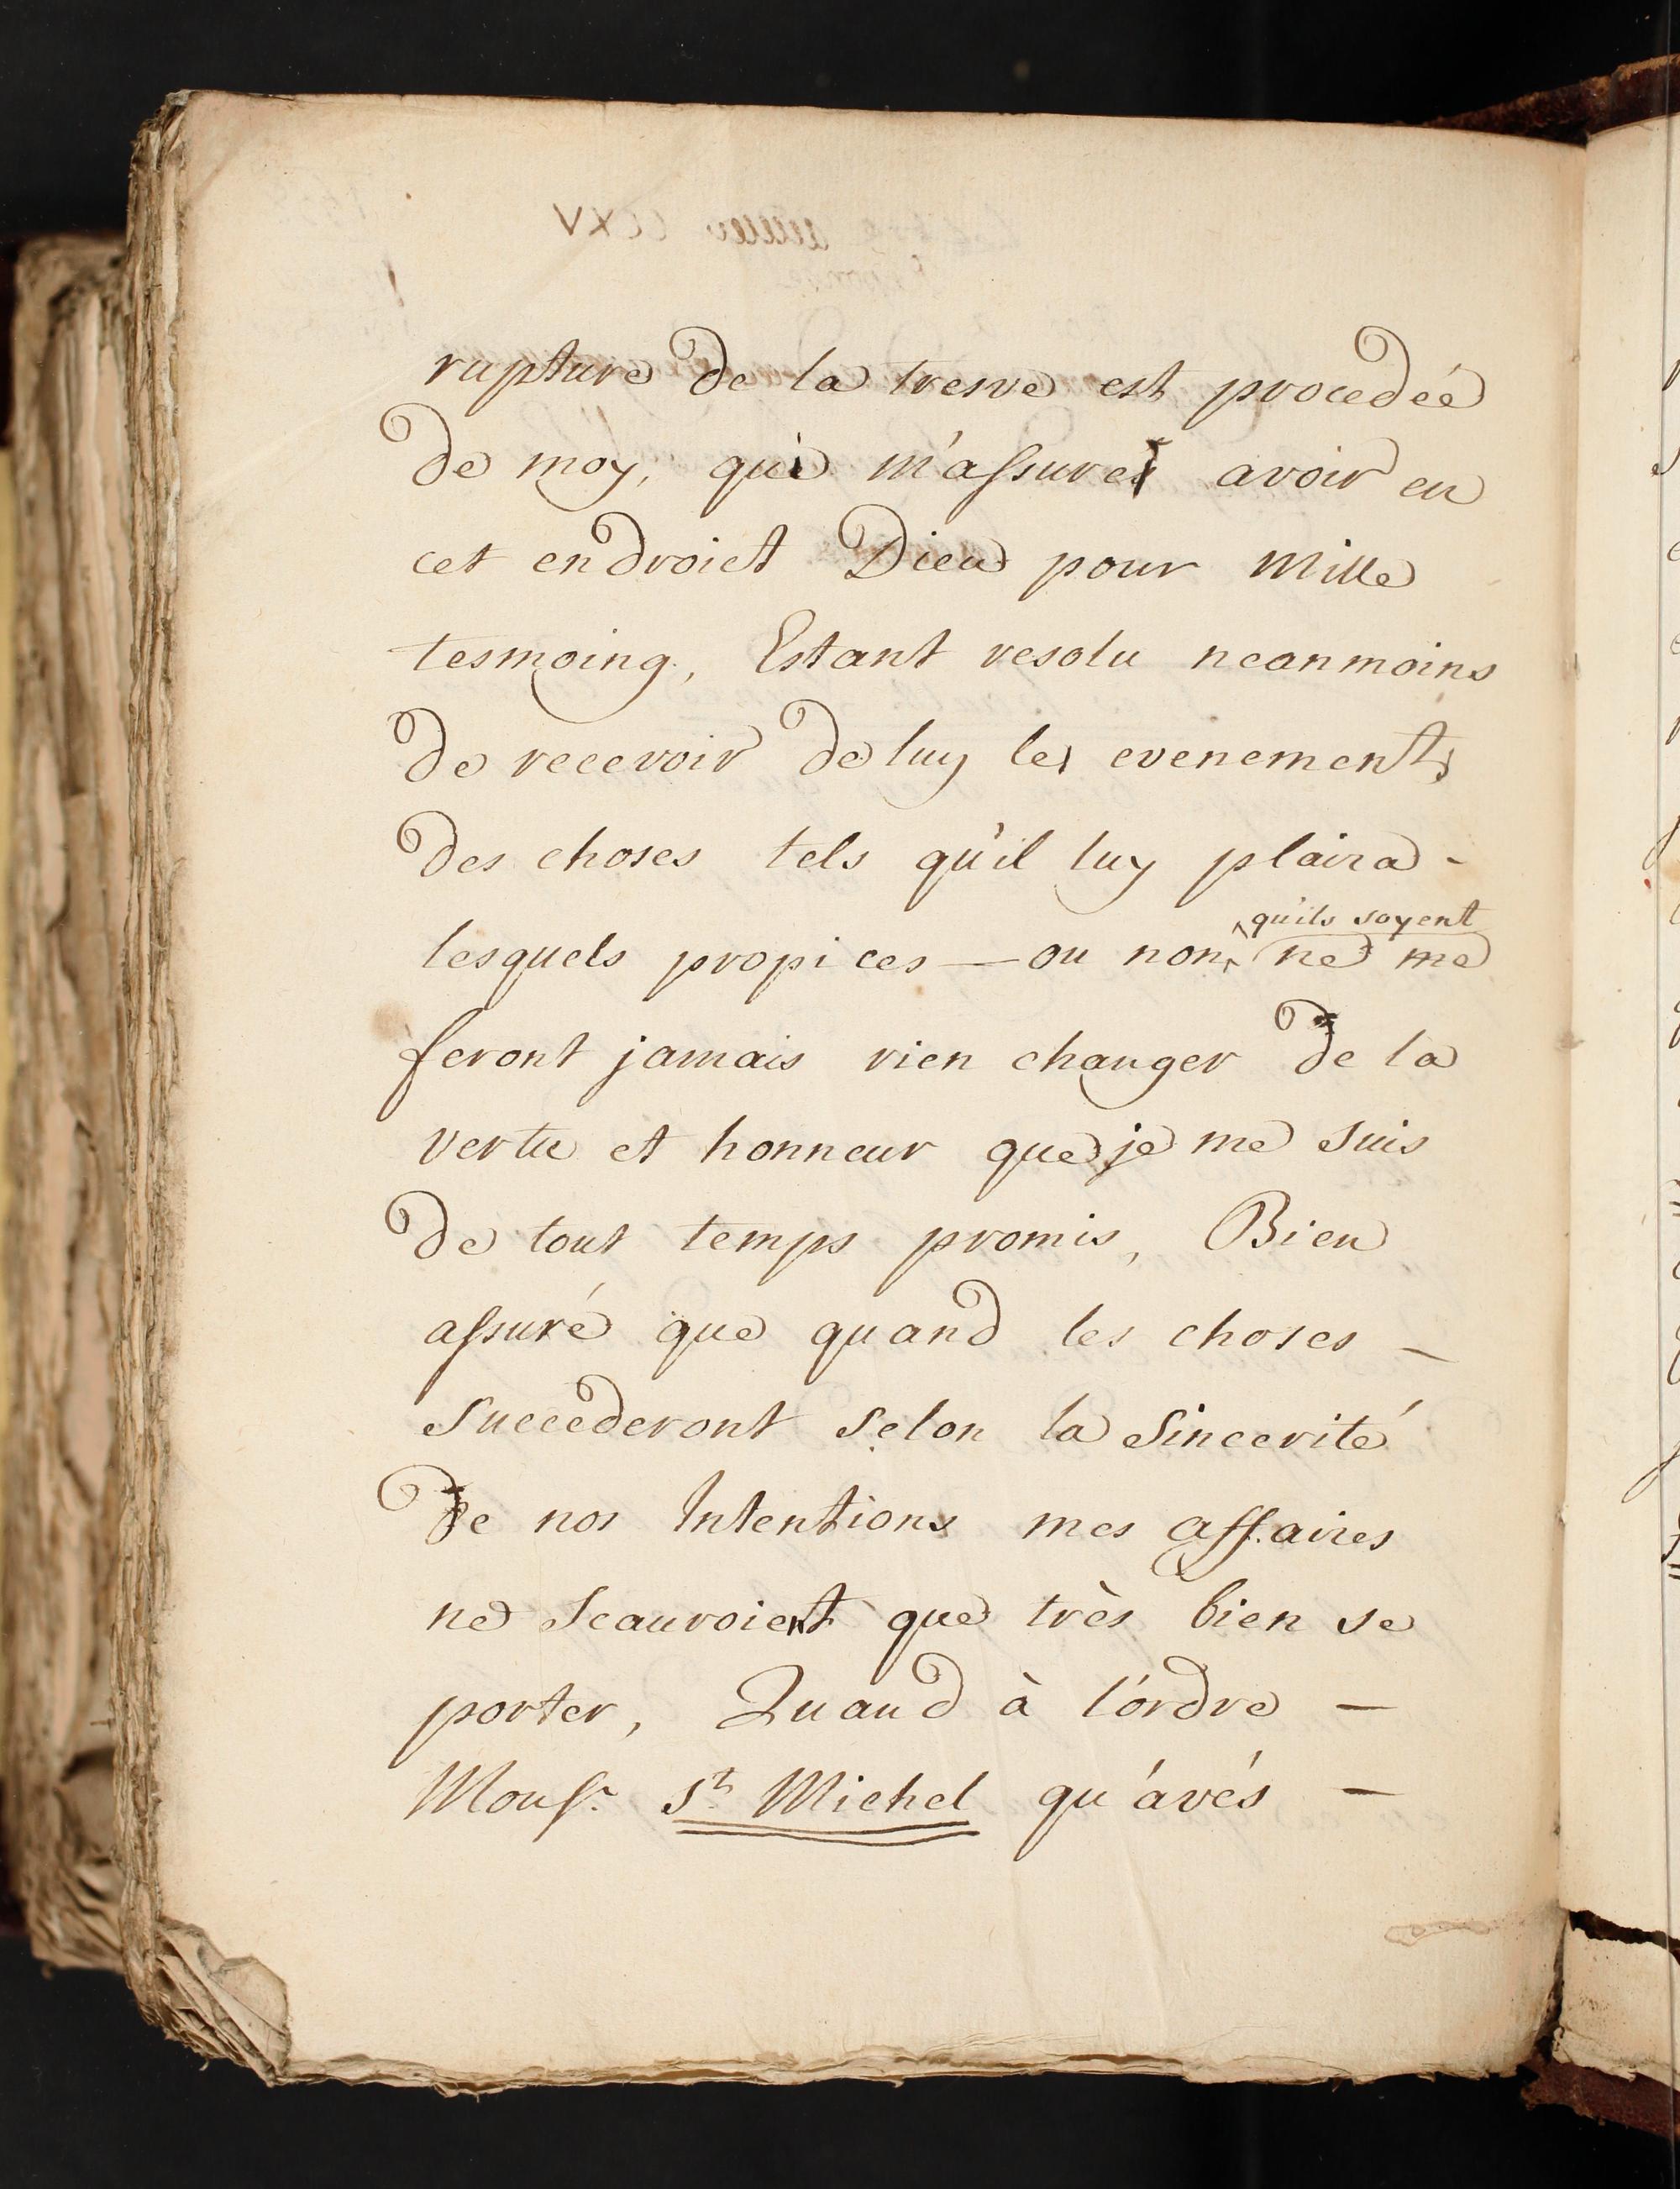 rupture de la tresve est procedée
de moy, qui m'assure avoir en
cet endroict Dieu pour mille
tesmoing, Estant resolu neanmoins
de recevoir de luy les evenements
des choses tels qu'il luy plaira -
lesquels propices — ou non, qu'ils soyent ne me
feront jamais rien changer de la
vertu et honneur que je me suis
de tout temps promis, Bien
assuré que quand les choses —
Succederont selon la Sincerité
de nos Intentions mes affaires
ne Scauroient que très bien se
porter, Quand à l'ordre —
Monsr. St. Michel qu'avés —